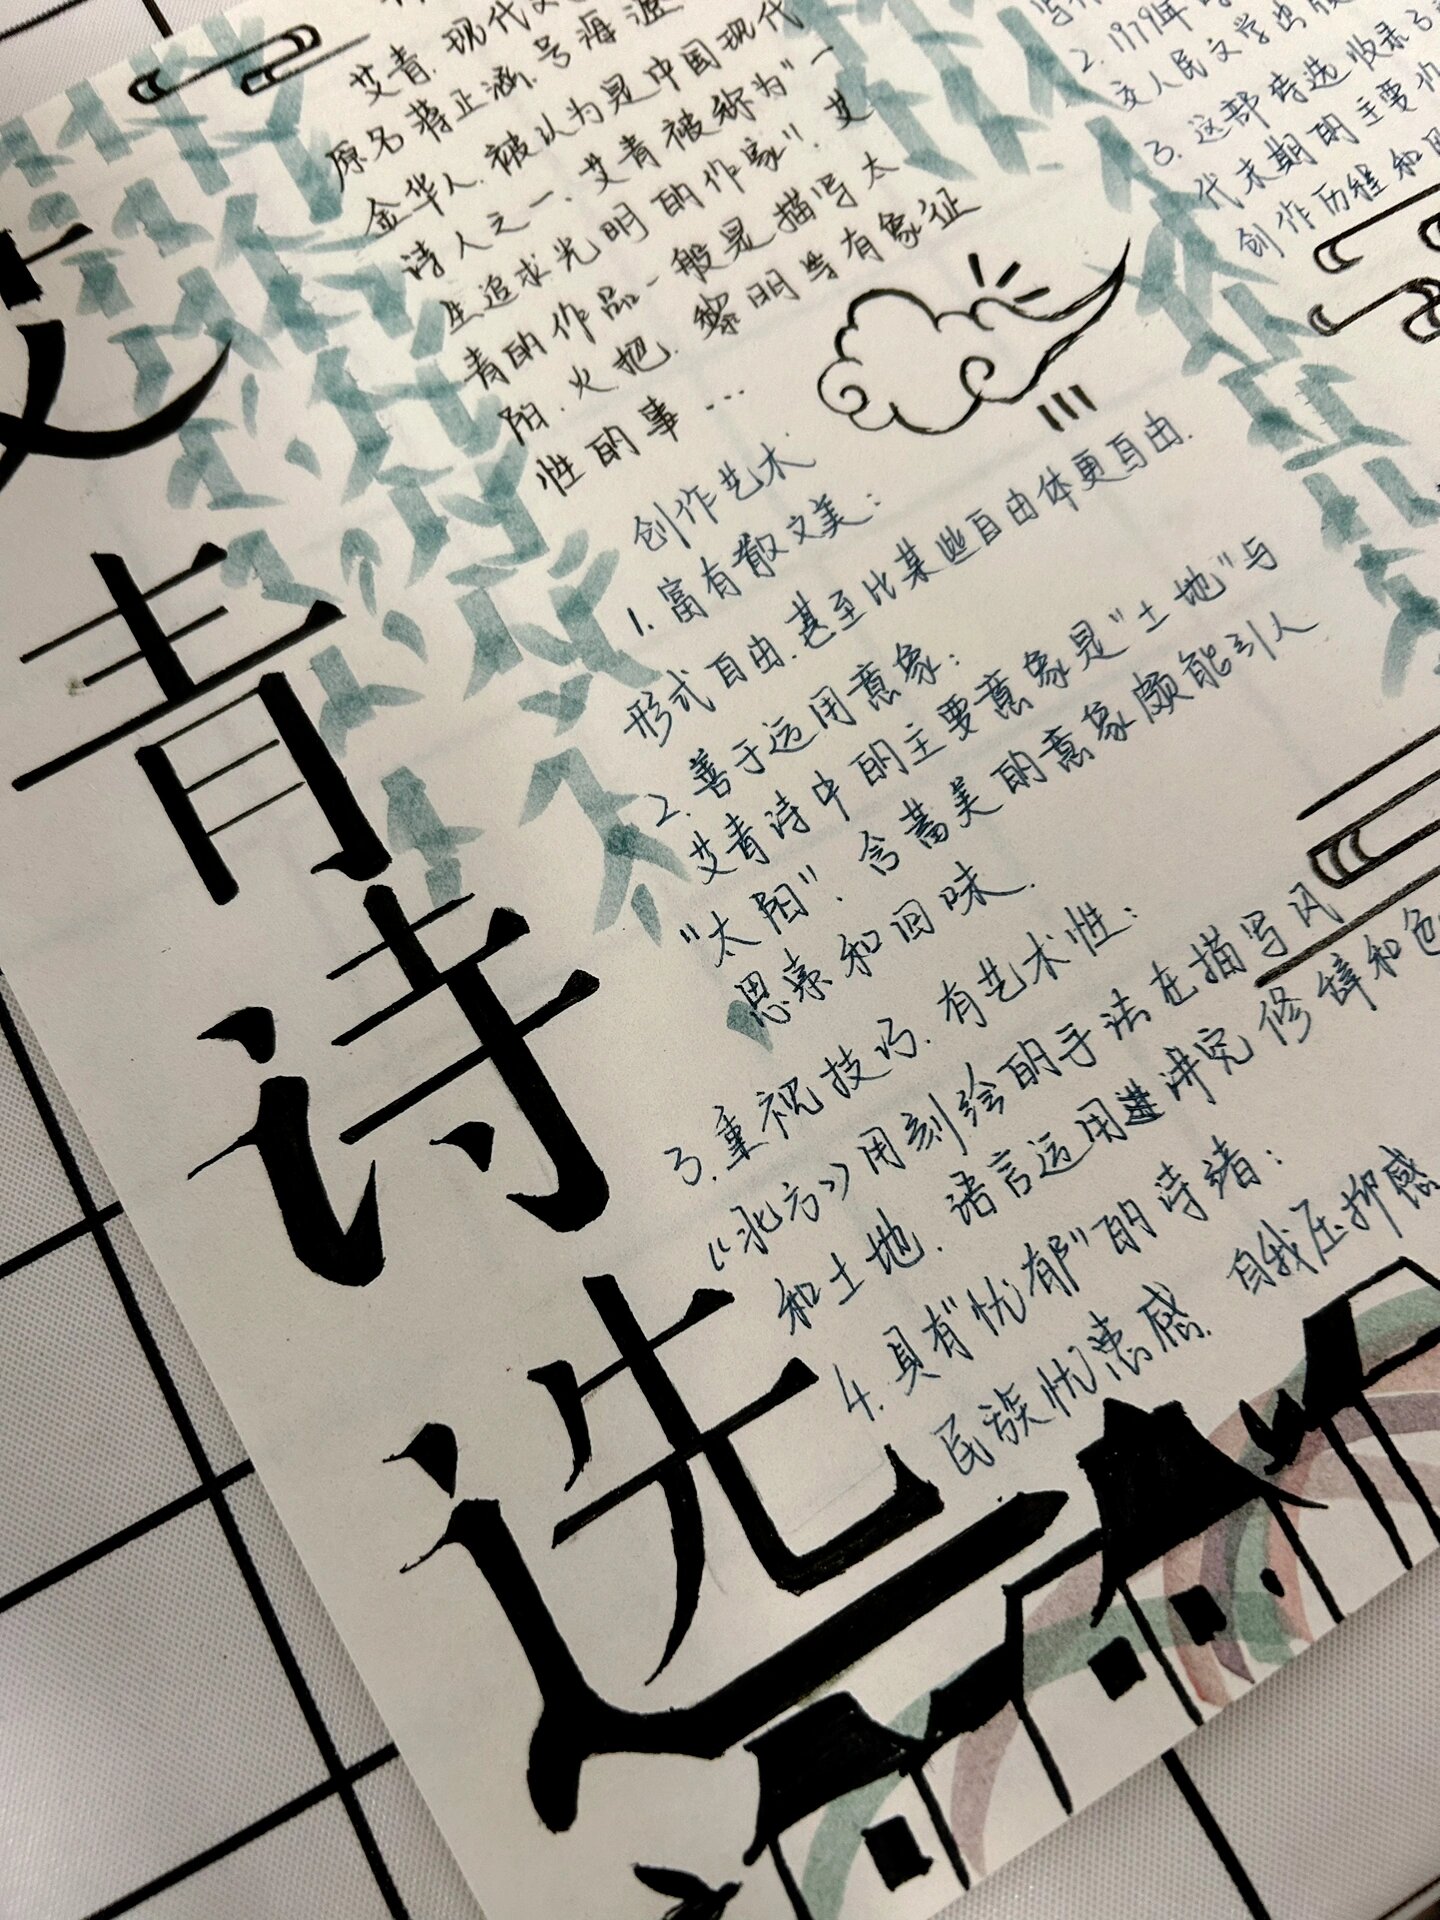 艾青诗选
艾青.现代
原名蒋正涵.号海澄
金华人.被认为是中国现代
诗人之一.艾青被称为"一
生追求光明的作家".艾
青的作品一般是描写太
阳.火把.黎明等有象征
性的事...
创作艺术
1.富有散文美:
形式自由.甚至比某些自由体更自由.
2.善于运用意象:
艾青诗中的主要意象是"土地"与
"太阳".含蓄美的意象颇能引人
思索和回味.
3.重视技巧.有艺术性:
《北方》用刻绘的手法在描写风
和土地.语言运用讲究修辞和色
4.具有"忧郁"的诗绪:
民族忧患感.自我压抑感
2.1979年
文人民文学出版
3.这部诗选收录了
代末期的主要作
创作历程和风